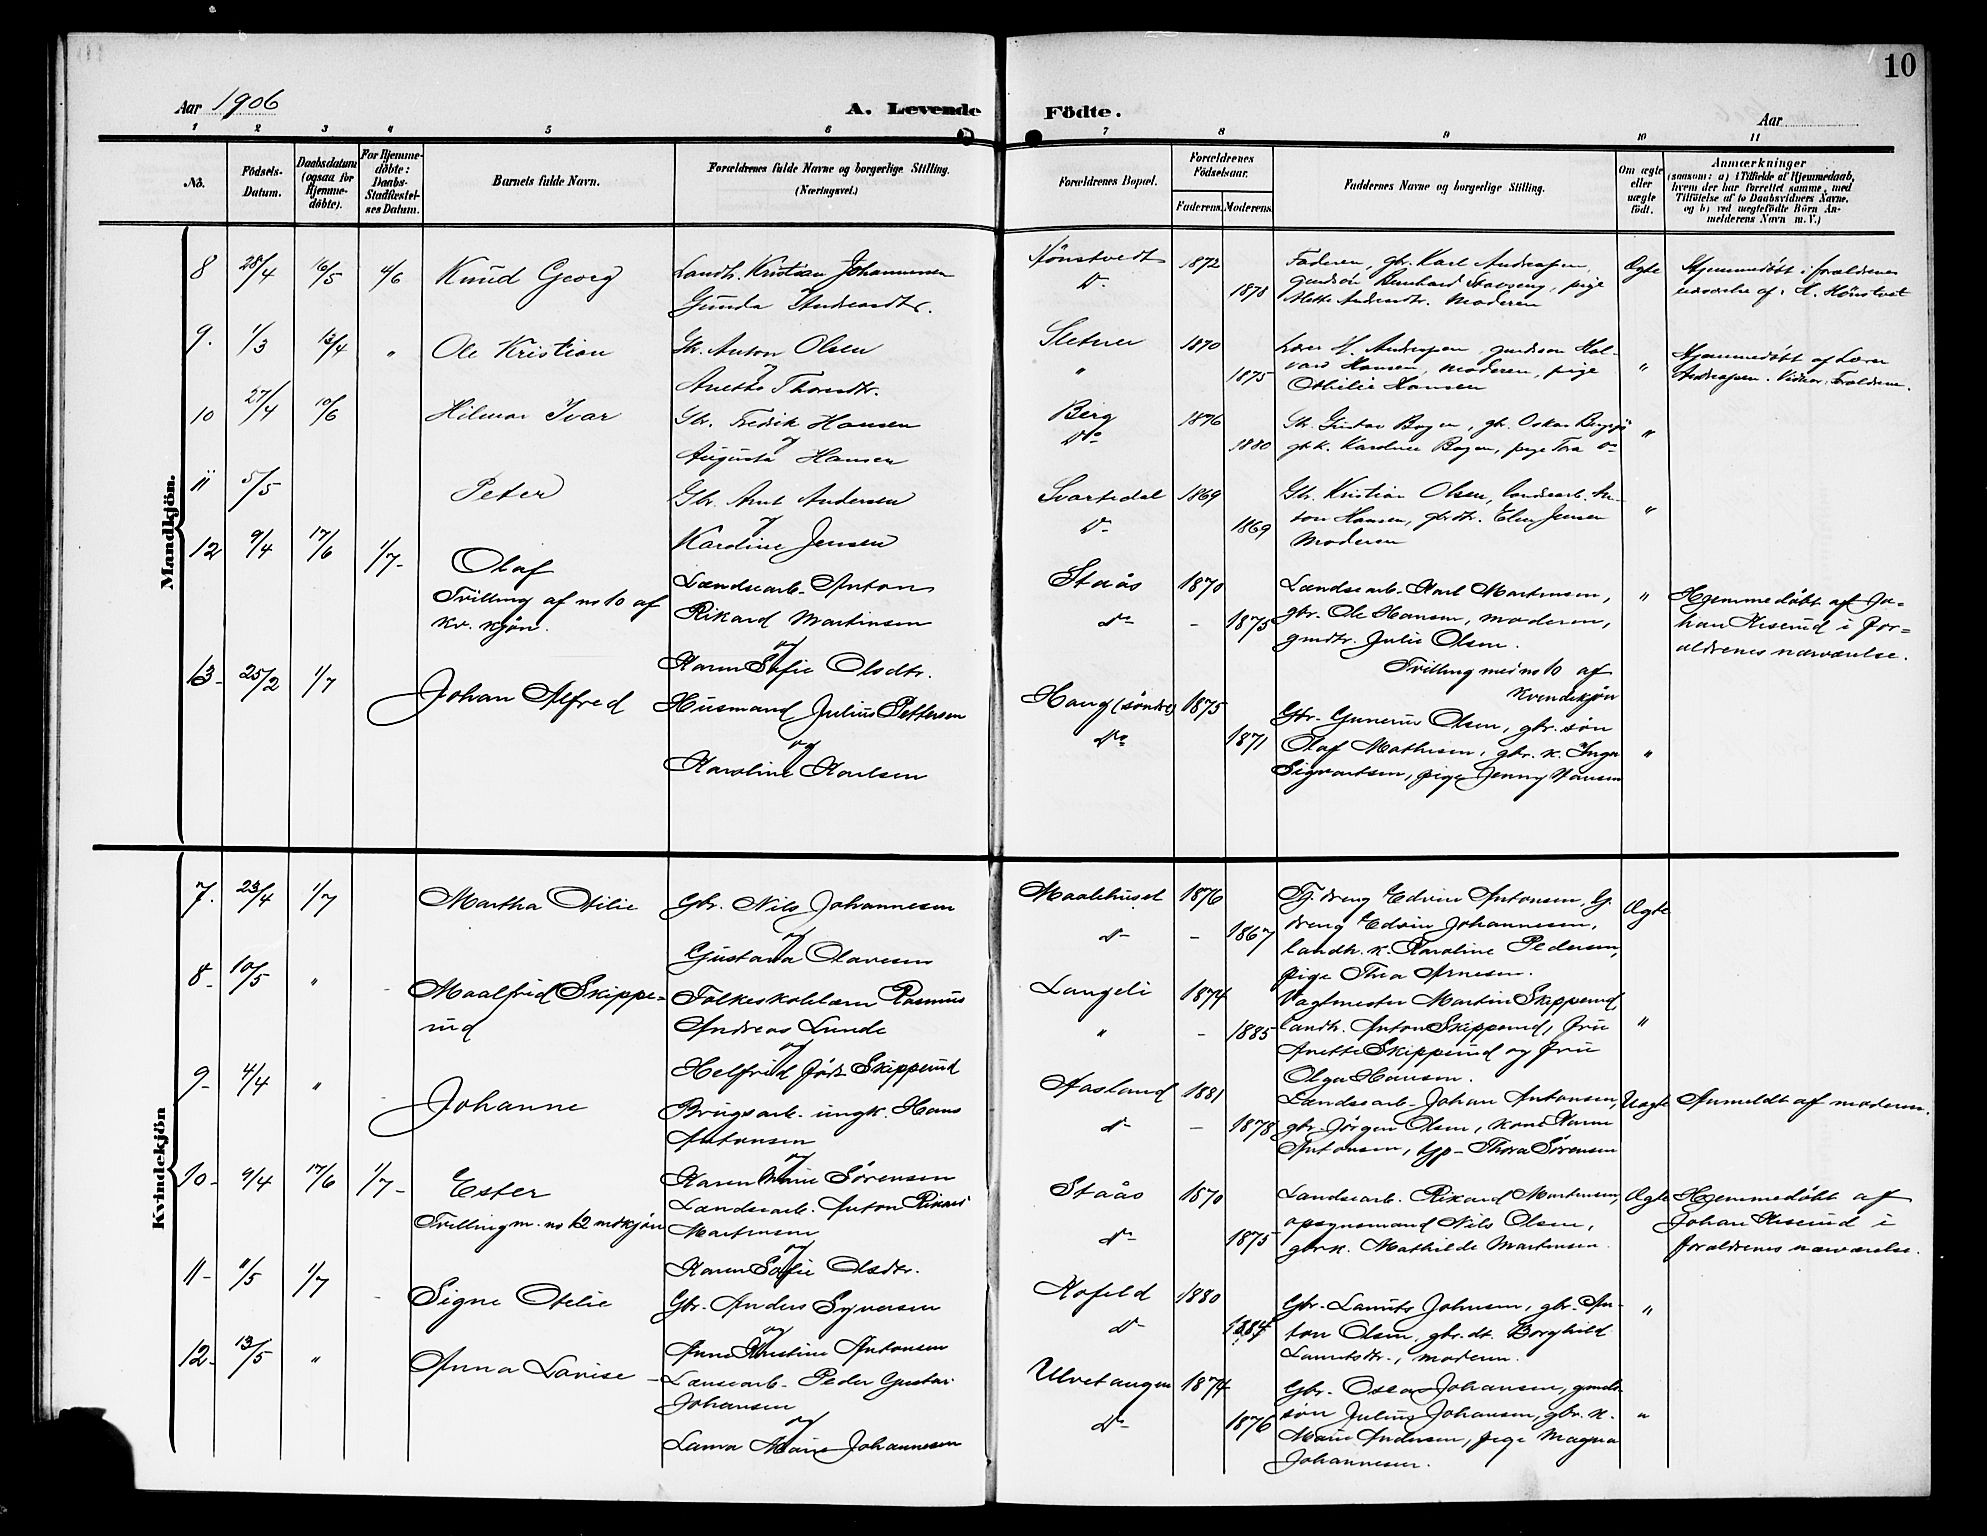 10
Aar 1906
A. Levende Födte.
Aar
1 2 3 4 5 6 7 8 9 10 11
No.
Födsels-Datum.
Daabsdatum (ogsaa for Hjemme-döbte).
For Hjemme-döbte: Daabs-Stadfæstel-ses Datum.
Barnets fulde Navn.
Forældrenes fulde Navne og borgerlige Stilling.
(Næringsvei.)
Forældrenes Bopæl.
Forældrenes Födselsaar.
Faderens. Moderens.
Faddernes Navne og borgerlige Stilling.
Om ægte eller uægte födt.
Anmærkninger
(saasom: a) i Tilfælde af Hjemmedaab,
hvem der har forrettet samme, med
Tilföielse af to Daabsvidners Navne.
og b) ved uegtefödte Börn An-
melderens Navn m. V.)
Mandkjön.
8 28/4 16/5 4/6 Knud Georg
Landh. Kristian Johannesen
Gunda Andersdtr.
Hönstvedt 1872
Do 1878
Faderen, gbr. Karl Andersen,
gmdsön Bernhard, pige
Mette Andersdtr. Moderen
Ægte
Hjemmedöbt i forældrenes
nærværelse af H. Hönstvet
9. 1/3 13/4 " Ole Kristian
Gbr. Anton Olsen
og
Anette Thorsdtr.
Sletner 1870
" 1875
Lærer Andersen, gmdsön Hal-
vard Hansen, moderen, pige
Othilie Hansen
"
Hjemmedöbt af Lærer
Andersen. Vidner: Forældrene.
10 27/4 10/6 Hilmar Ivar
Gbr. Fredrik Hansen
og
Augusta Hansen
Berg 1876
Do 1880
Gbr. Gustav Bogen, gbr. Oskar
gbk. Karoline Bogen, pige Tora do
"
11 5/5 Peter
Gbr. Arnt Andersen
og
Karoline Jensen
Svartedal 1869
Do 1869
Gbr. Kristian Olsen, landsearb. An-
ton Hansen, gbrdtr. Elen Jensen
Moderen
"
12 9/4 17/6 1/7- Olaf
Tvilling af no 10 af
kv. kjön.
Lændsearb. Anton
Rikard Martinsen
og
Karen Sofie Olsdtr.
Staås 1870
do - 1875
Lændsearb. Karl Martinsen,
gbr. Ole Hansen, moderen,
gmdtr. Julie Olsen.
Tvilling med no 10 af
kvindekjön
"
Hjemmedöbt af Jo-
han Riserud i for-
ældrenes nærværelse.
13- 25/2 1/7 Johan Alfred
Husmand Julius Pettersen
og
Karoline Karlsen
Haug (söndre) 1875
do 1871
Gbr. Gunerius Olsen, gbr. sön
Olaf Mathisen, gbr. k. Inga
Sigvartsen, pige Jenny Hansen
"
Kvindekjön
7. 23/4 1/7 Martha Otilie
Gbr. Nils Johannesen
og
Gustava Olavesen
Maalehuset 1876
do - 1867
Tj. dreng Edvin Antonsen, G.
dreng Edvin Johannesen,
landh. k. Karoline Pedersen,
pige Thea Arnesen.
Ægte
8- 10/5 " Maalfrid Skippe-
rud
Folkeskolelærer Rasmus
Andreas Lunde
og
Helfrid föds Skipperud
Langeli 1874
" - 1885
Vagtmester Martin Skipperud,
landh. Anton Skipperud, fru
Anette Skipperud og fru
Olga Hansen.
"
9- 4/4 " Johanne
Brugsarb. ungk. Hans
Antonsen
og
Karen Marie Sörensen
Aasland 1881
do - 1878
Lændsearb- Johan Antonsen,
gbr Jörgen Olsen, kone Karen
Antonsen, tjp- Thora Sörensen
Uægte Anmeldt af moderen.
10- 9/4 17/6 1/7- Ester
Tvilling m. no 12 mdkjön
Lændsearb. Anton Rikard
Martinsen
og
Karen Sofie Olsdtr.
Staås 1870
do 1875
Landsearb. Rikard Martinsen,
opsynsmand Nils Olsen,
gbrk. Mathilde Martinsen.
Ægte
Hjemmedöbt af
Johan Riserud i
forældrenes nærværelse.
11- 11/5 1/7 - Signe Otelie
Gbr. Anders Syversen
og
Anne Kristine Antonsen
Kofeld 1880
do 1884
Gbr. Lauritz Johnsen, gbr. An-
ton Olsen, gbr. dt. Borghild
Lauritsdtr., moderen.
"
12- 13/5 " Anna Lovise -
Lænsearb- Peder Gustav
Johansen
og
Laura Marie Johannesen
Ulvetangen 1874
do 1876
Gbr- Oscar Johansen, gmds
sön Julius Johansen, gbr. k.
Marie Andersen, pige Magna
Johannesen.
"